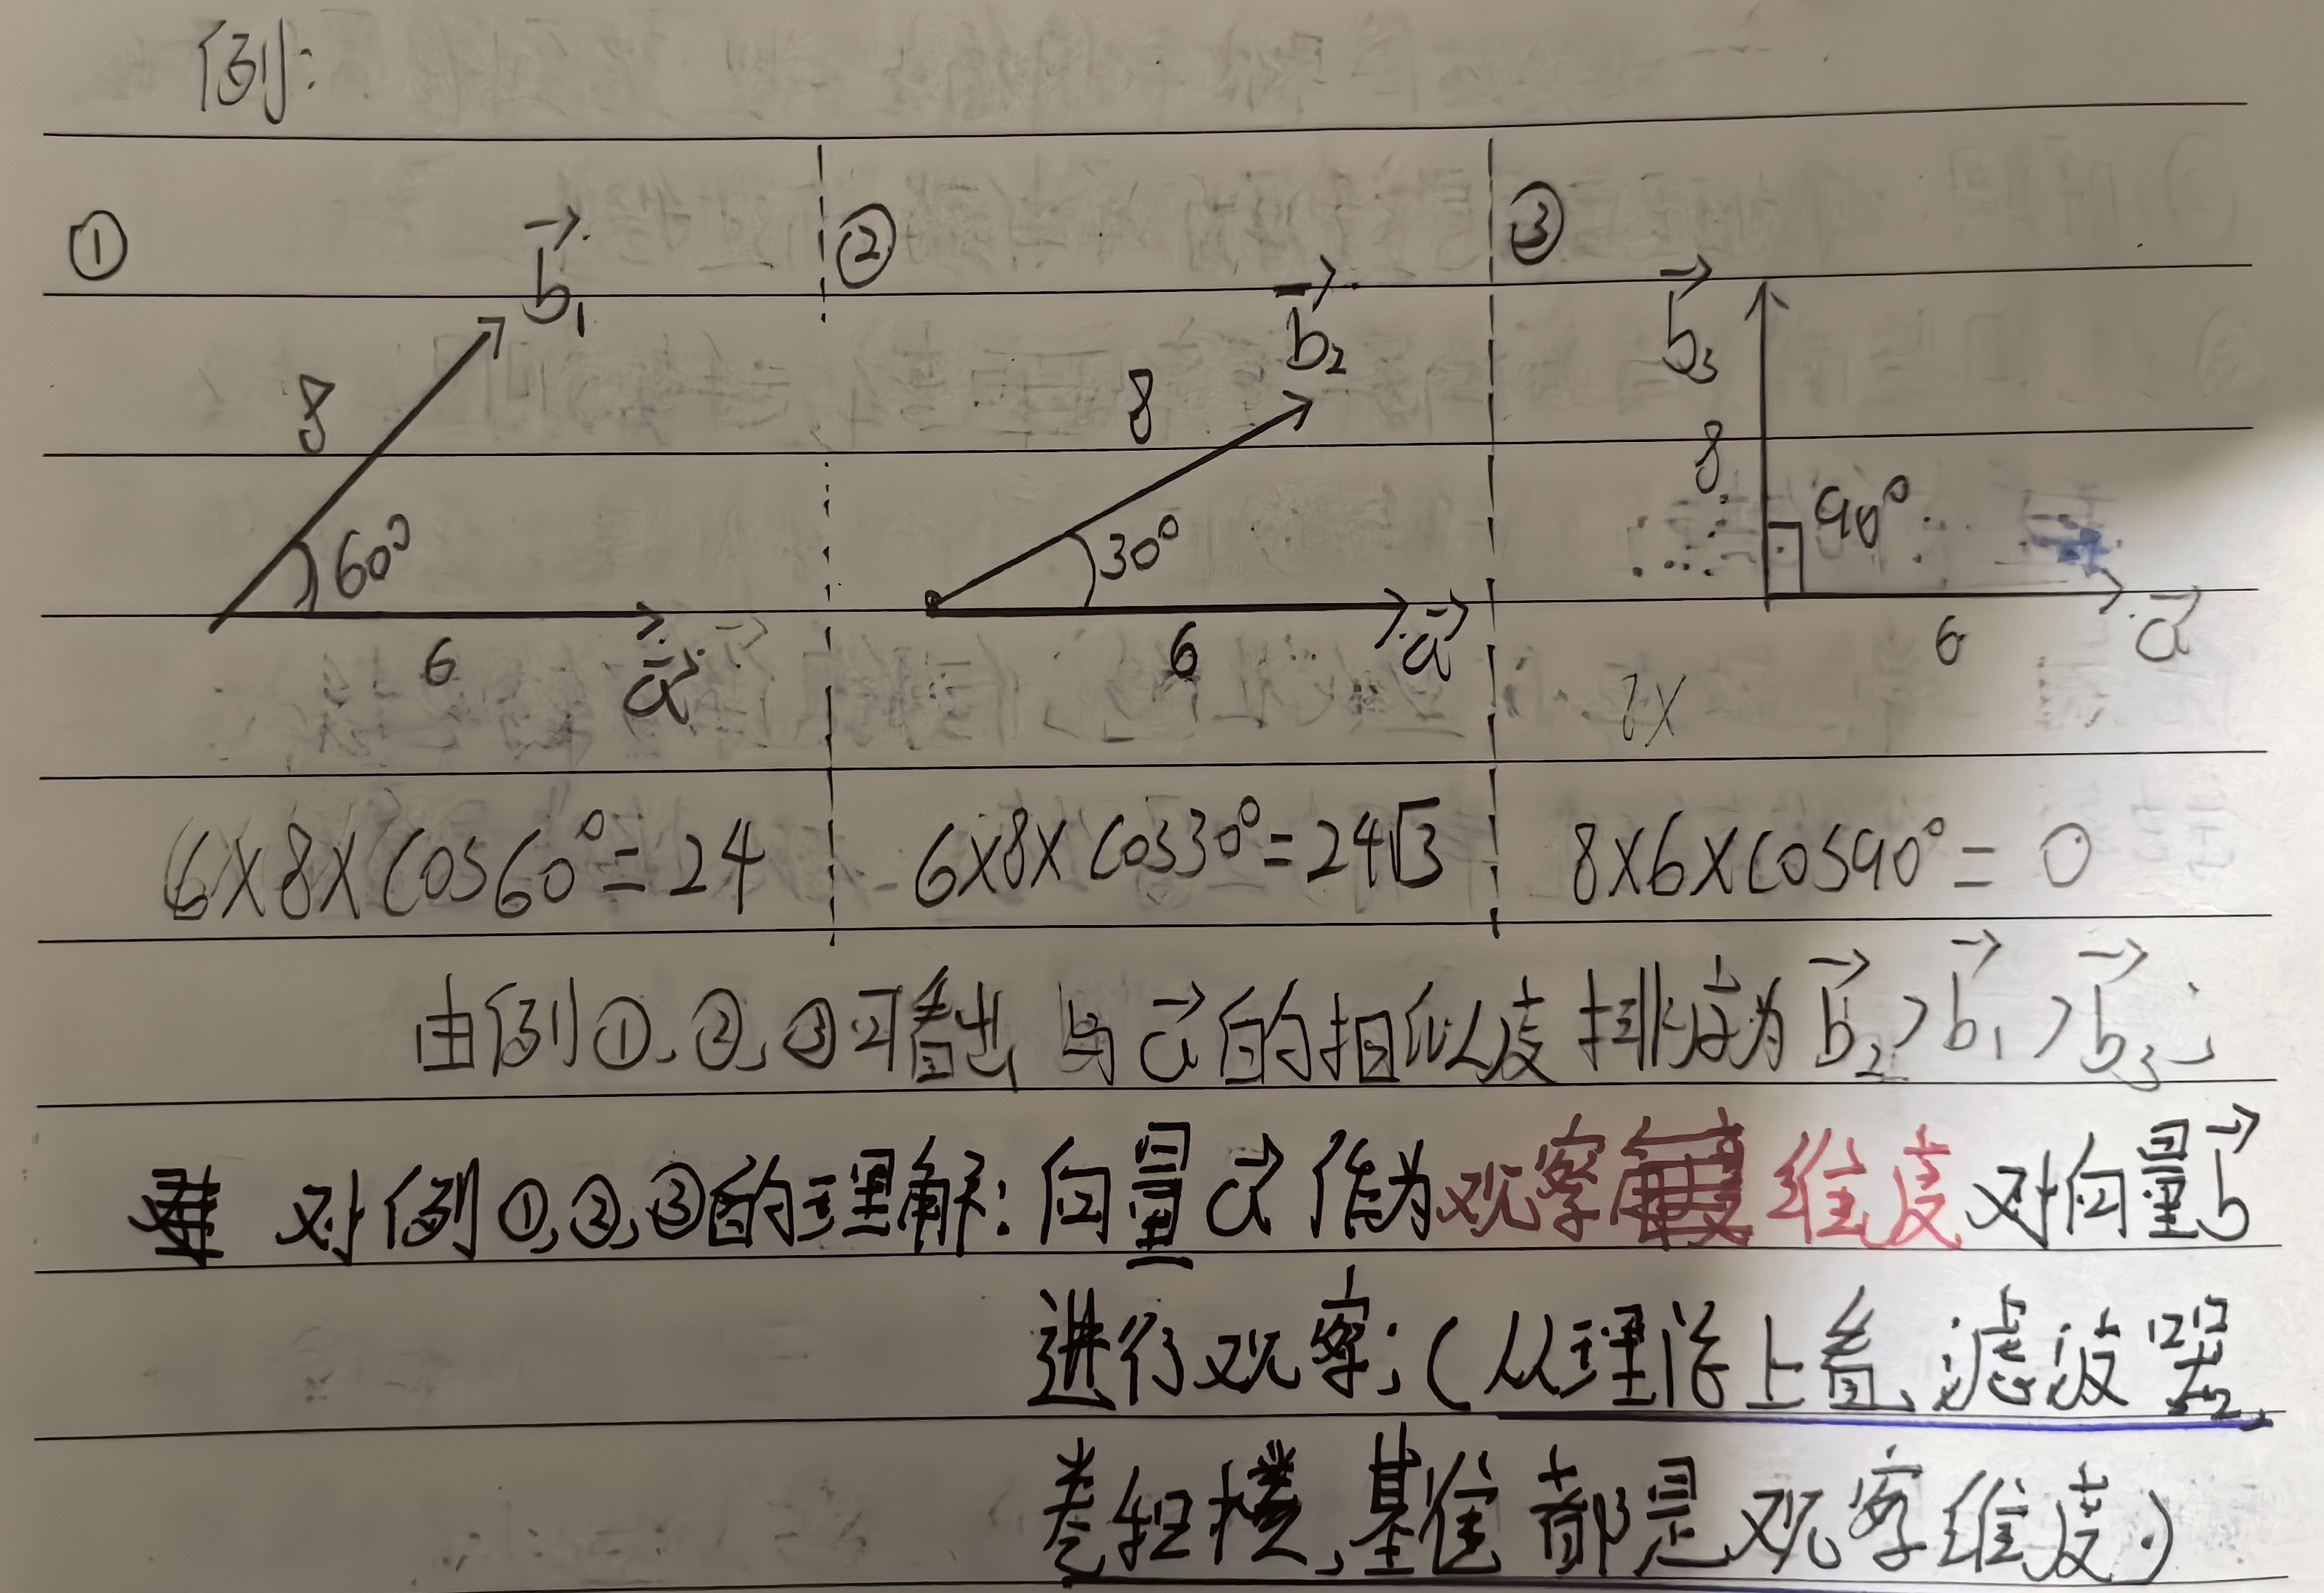 例:
① b₁ 8 60° 6 a
② b₂ 8 30° 6 a
③ b₃ 8 90° 6 a
8×
6×8×cos60°=24
6×8×cos30°=24√3
8×6×cos90°=0
由例①、②、③可看出 与a的相似度排序为b₂>b₁>b₃;
对例①、②、③的理解: 向量a作为观察维度对向量b
进行观察;(从理论上看、滤波器、
卷积核、基准都是观察维度.)